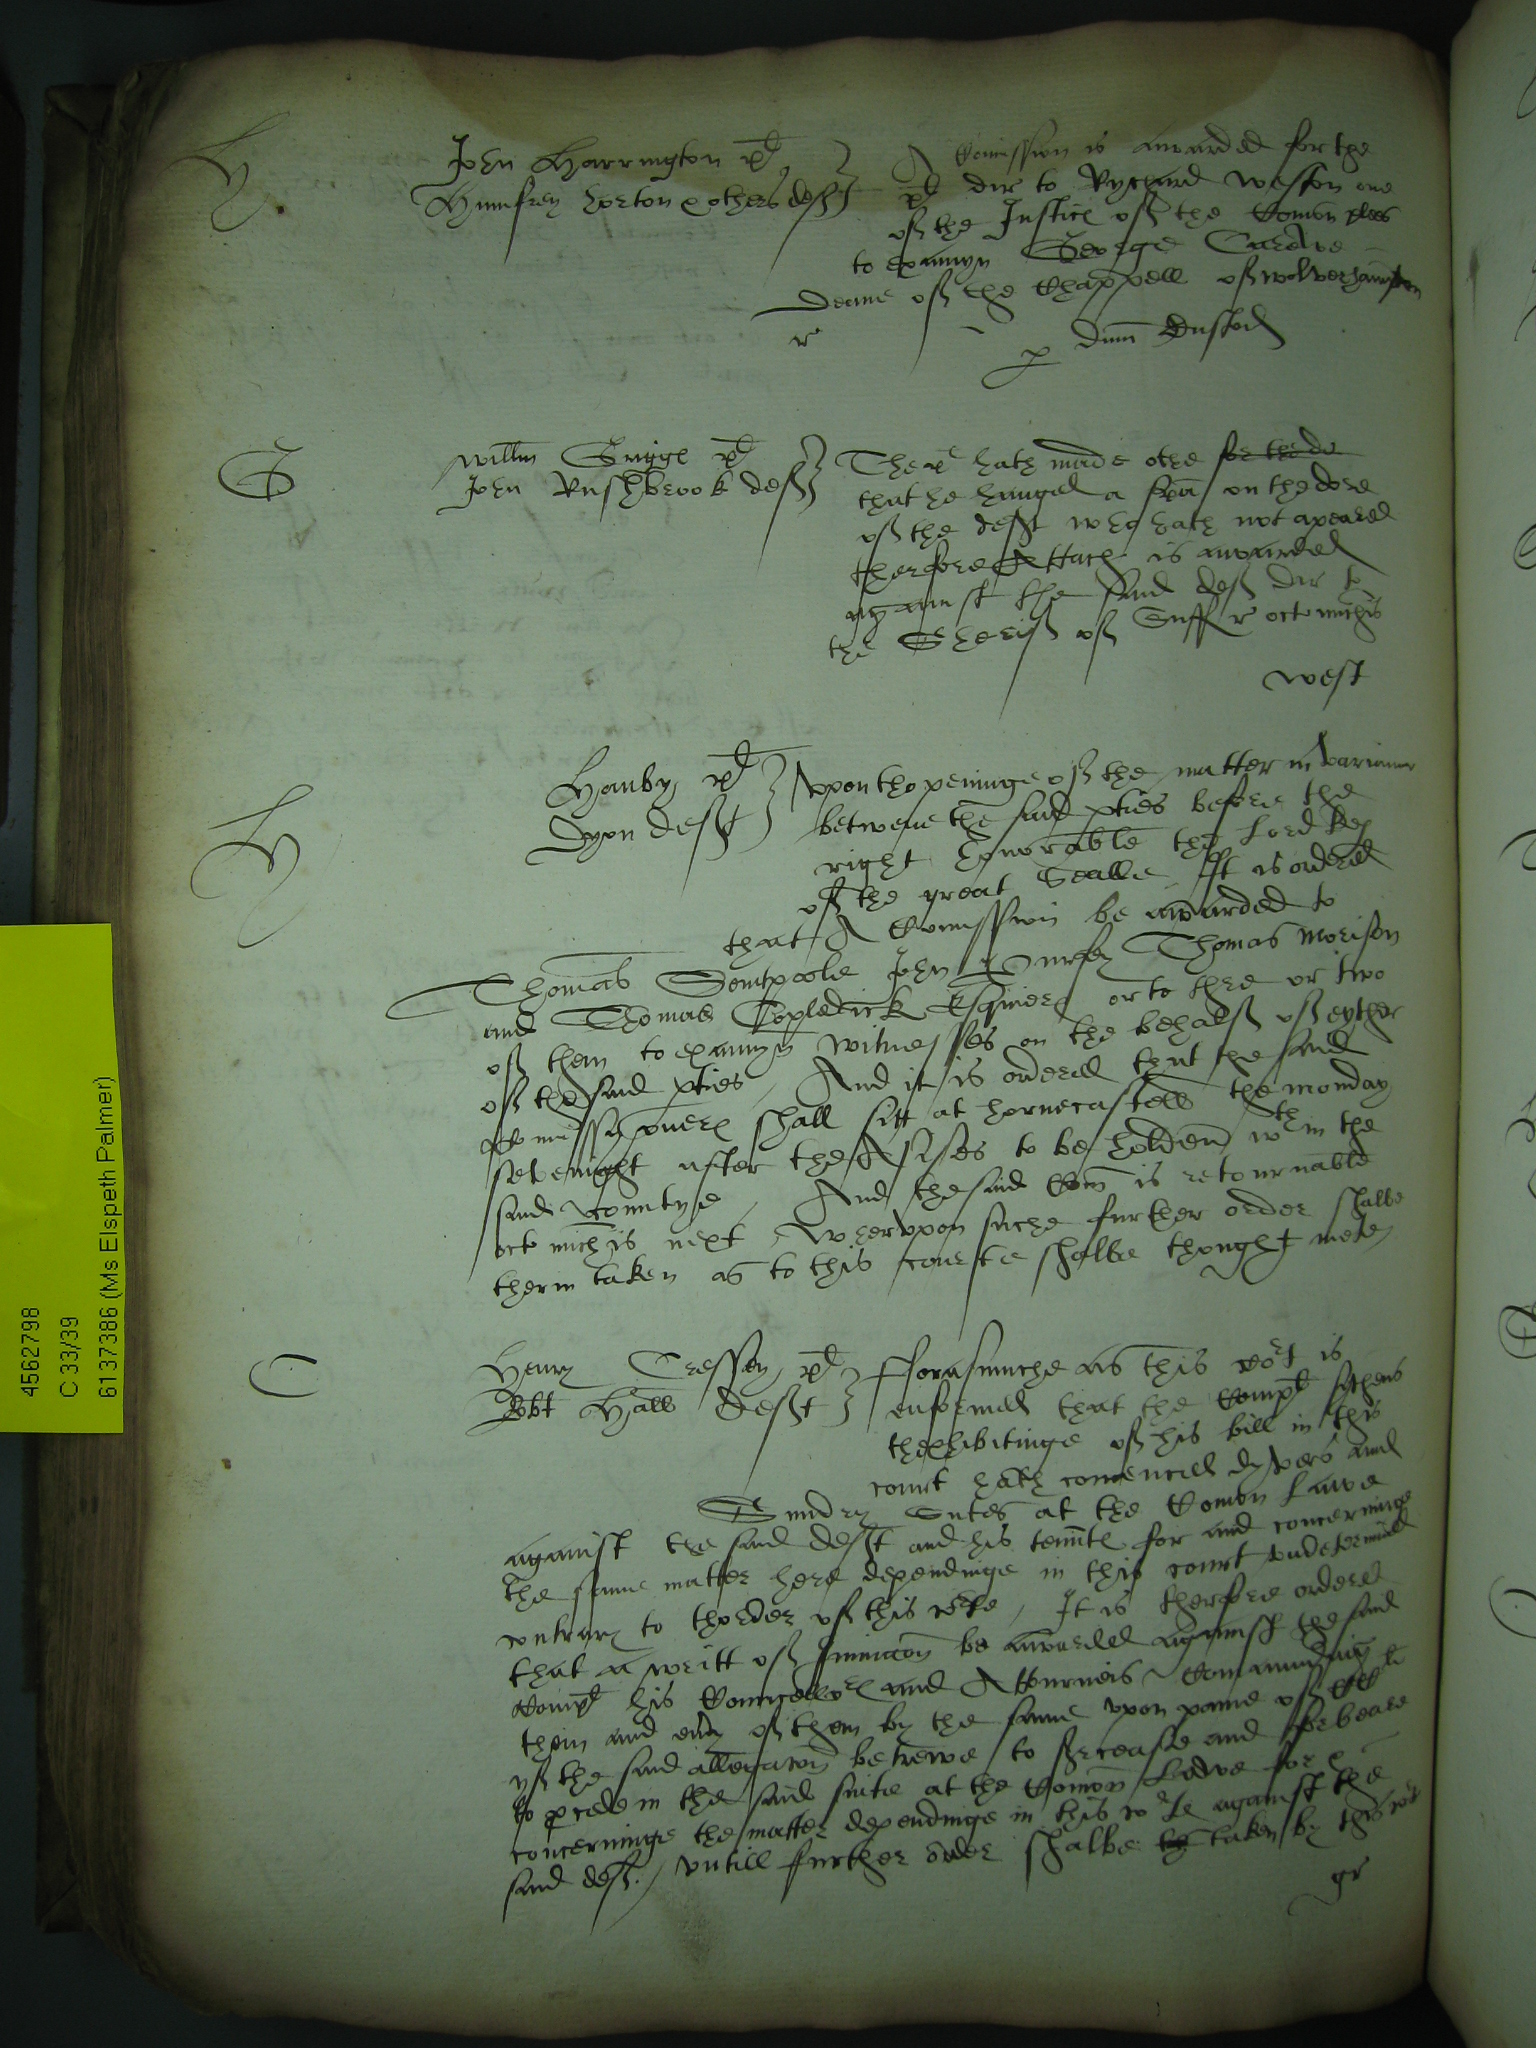 H
John Harrington pl
Humfrey horton & others def
A Comission is awarded for the
pl dir to Rychard Weston one
of the Justice of the Comon plees
to examyn George Carewe
Deane of the Chappell of wolverhampton
r
p dmn Custod
G
Willm Grigge pl
John Rushbrook def
The pl hath made othe for the de
that he hanged a on the dore
of the deft who hath not apeared
therfore Attach is awarded
against the said def dir to
the Sherif of Suff r octo michis
west
H
Hanby pl
Dyon deft
Vpon thopeninge of the matter in variaunce
betwene the said pties before the
right honorable the Lord Kep
of the great Sealle It is ordered
that A Comission be awarded to
Thomas Sentpoole John Thomas Morison
and Thomas Copledick Esquiers or to thre or two
of them to examyn witnesses on the behalf of eyther
of the said pties, And it is ordered that the said
Comissyoners shall sitt at hornecastell the monday
sevenight after the Assises to be holden wthin the
said countye, And the said Com is retournable
octo michis next, Wherupon suche further order shalbe
therin taken as to this courte shalbe thought mete
C
Henry Cressey pl
Robt Hall deft
Fforasmuche as this cort is
enformed that the Compl sithens
thexhibitinge of his bill in this
court hath comenced dyvers and
Sundry Sutes at the Comon Lawe
against the said deft and his tennte for and concerninge
the same matter here dependinge in this court undetermined
contrary to thorder of this corte, It is therfore ordered
that a writt of Iniunccon be awarded against the said
Compl his Councellors and Attourneis Comaunding
them and euy of them by the same upon paine of CC li
yf the said allegacon be trewe to surcease and forbeare
to procede in the said suite at the Comon Lawe for &
concerninge the matter dependinge in this corte against the
said def., untill further order shalbe taken by this cort
gr
4562798
C 33/39
6137386 (Ms Elspeth Palmer)